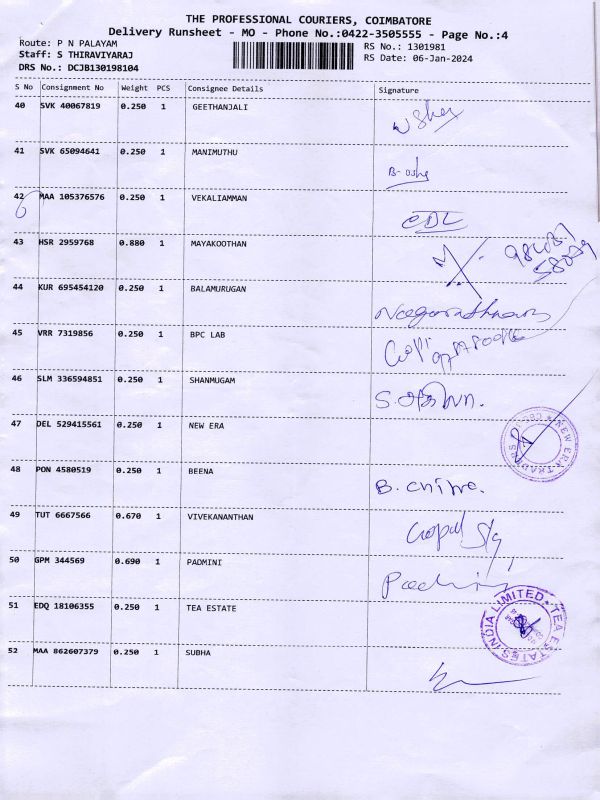 THE PROFESSIONAL COURIERS, COIMBATORE
Delivery Runsheet - MO - Phone No.:0422-3505555 - Page No.:4
Route: P N PALAYAM
RS No.: 1301981
Staff: S THIRAVIYARAJ
RS Date: 06-Jan-2024
DRS No.: DCJB130198104
S No Consignment No Weight PCS Consignee Details Signature
40 SVK 40067819 0.250 1 GEETHANJALI
41 SVK 65094641 0.250 1 MANIMUTHU
42 MAA 105376576 0.250 1 VEKALIAMMAN
43 HSR 2959768 0.880 1 MAYAKOOTHAN
44 KUR 695454120 0.250 1 BALAMURUGAN
45 VRR 7319856 0.250 1 BPC LAB
46 SLM 336594851 0.250 1 SHANMUGAM
47 DEL 529415561 0.250 1 NEW ERA
NEW ERA TRADING
48 PON 4580519 0.250 1 BEENA
49 TUT 6667566 0.670 1 VIVEKANANTHAN
Gopal
50 GPM 344569 0.690 1 PADMINI
51 EDQ 18106355 0.250 1 TEA ESTATE
TEA ESTATES INDIA LIMITED
52 MAA 862607379 0.250 1 SUBHA